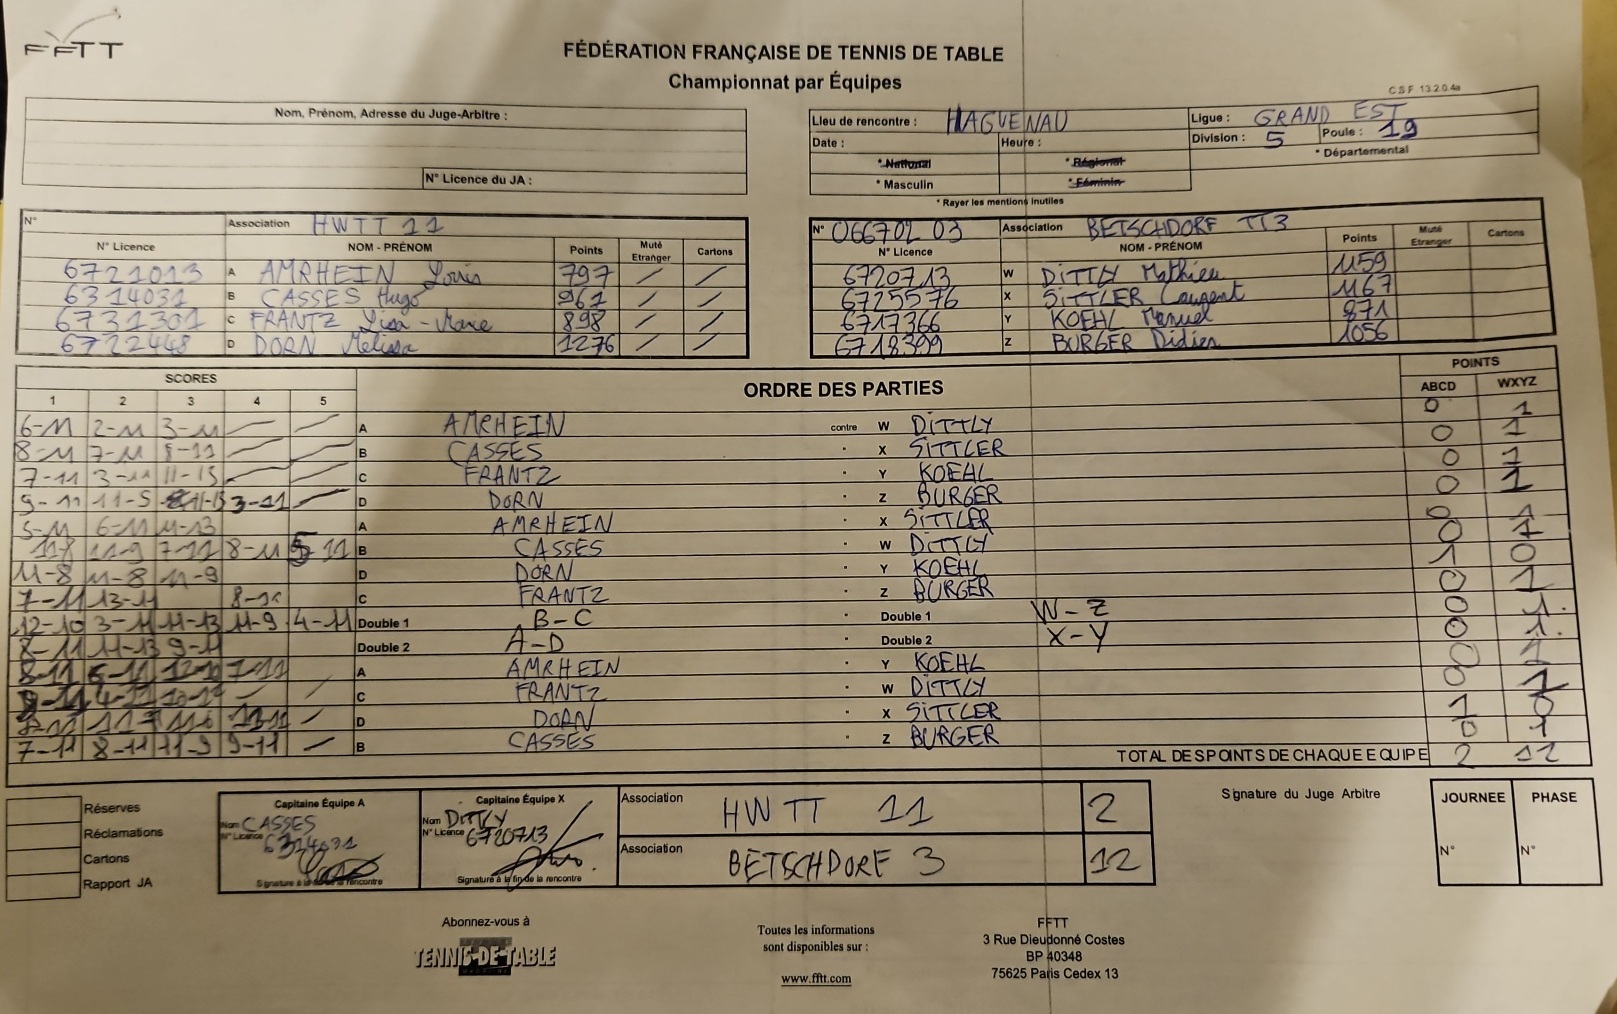 FFTT
FÉDÉRATION FRANÇAISE DE TENNIS DE TABLE
Championnat par Équipes
CSF 13.2.0.4a
Nom, Prénom, Adresse du Juge-Arbitre :
N° Licence du JA :
Lieu de rencontre : HAGUENAU
Ligue : GRAND EST
Date : Heure :
Division : 5 Poule : 19
* National * Régional * Départemental
* Masculin * Féminin
* Rayer les mentions inutiles
N° Association HWTT 11
N° Licence NOM - PRÉNOM Points Muté Etranger Cartons
6721013 A AMRHEIN Louis 797
6314031 B CASSES Hugo 961
6731301 C FRANTZ Lisa-Marie 898
6722448 D DORN Melissa 1276
N° 066702 03 Association BETSCHDORF TT3
N° Licence NOM - PRÉNOM Points Muté Etranger Cartons
6720713 W DITTLY Mathieu 1159
6725576 X SITTLER Laurent 1167
6717366 Y KOEHL Manuel 871
6718399 Z BURGER Didier 1056
SCORES ORDRE DES PARTIES POINTS
1 2 3 4 5 ABCD WXYZ
6-11 2-11 3-11 A AMRHEIN contre W DITTLY 0 1
8-11 7-11 8-11 B CASSES X SITTLER 0 1
7-11 3-11 11-13 C FRANTZ Y KOEHL 0 1
9-11 11-5 11-13 3-11 D DORN Z BURGER 0 1
5-11 6-11 11-13 A AMRHEIN X SITTLER 0 1
11-8 11-9 7-11 8-11 5 11 B CASSES W DITTLY 0 1
11-8 11-8 11-9 D DORN Y KOEHL 1 0
7-11 13-11 C FRANTZ Z BURGER 0 1
12-10 3-11 11-13 11-9 4-11 Double 1 B-C Double 1 W-Z 0 1
8-11 11-13 9-11 Double 2 A-D Double 2 X-Y 0 1
8-11 6-11 12-10 7-11 A AMRHEIN Y KOEHL 0 1
9-11 4-11 10-12 C FRANTZ W DITTLY 0 1
8-11 11-7 11-6 13-11 D DORN X SITTLER 1 0
7-11 8-11 11-9 9-11 B CASSES Z BURGER 0 1
TOTAL DES POINTS DE CHAQUE EQUIPE 2 12
Réserves
Réclamations
Cartons
Rapport JA
Capitaine Équipe A
Nom CASSES
N° Licence 6314031
Signature à la fin de la rencontre
Capitaine Équipe X
Nom DITTLY
N° Licence 6720713
Signature à la fin de la rencontre
Association HWTT 11 2
Association BETSCHDORF 3 12
Signature du Juge Arbitre
JOURNEE PHASE
N° N°
Abonnez-vous à
TENNIS-DE-TABLE
Toutes les informations
sont disponibles sur :
www.fftt.com
FFTT
3 Rue Dieudonné Costes
BP 40348
75625 Paris Cedex 13